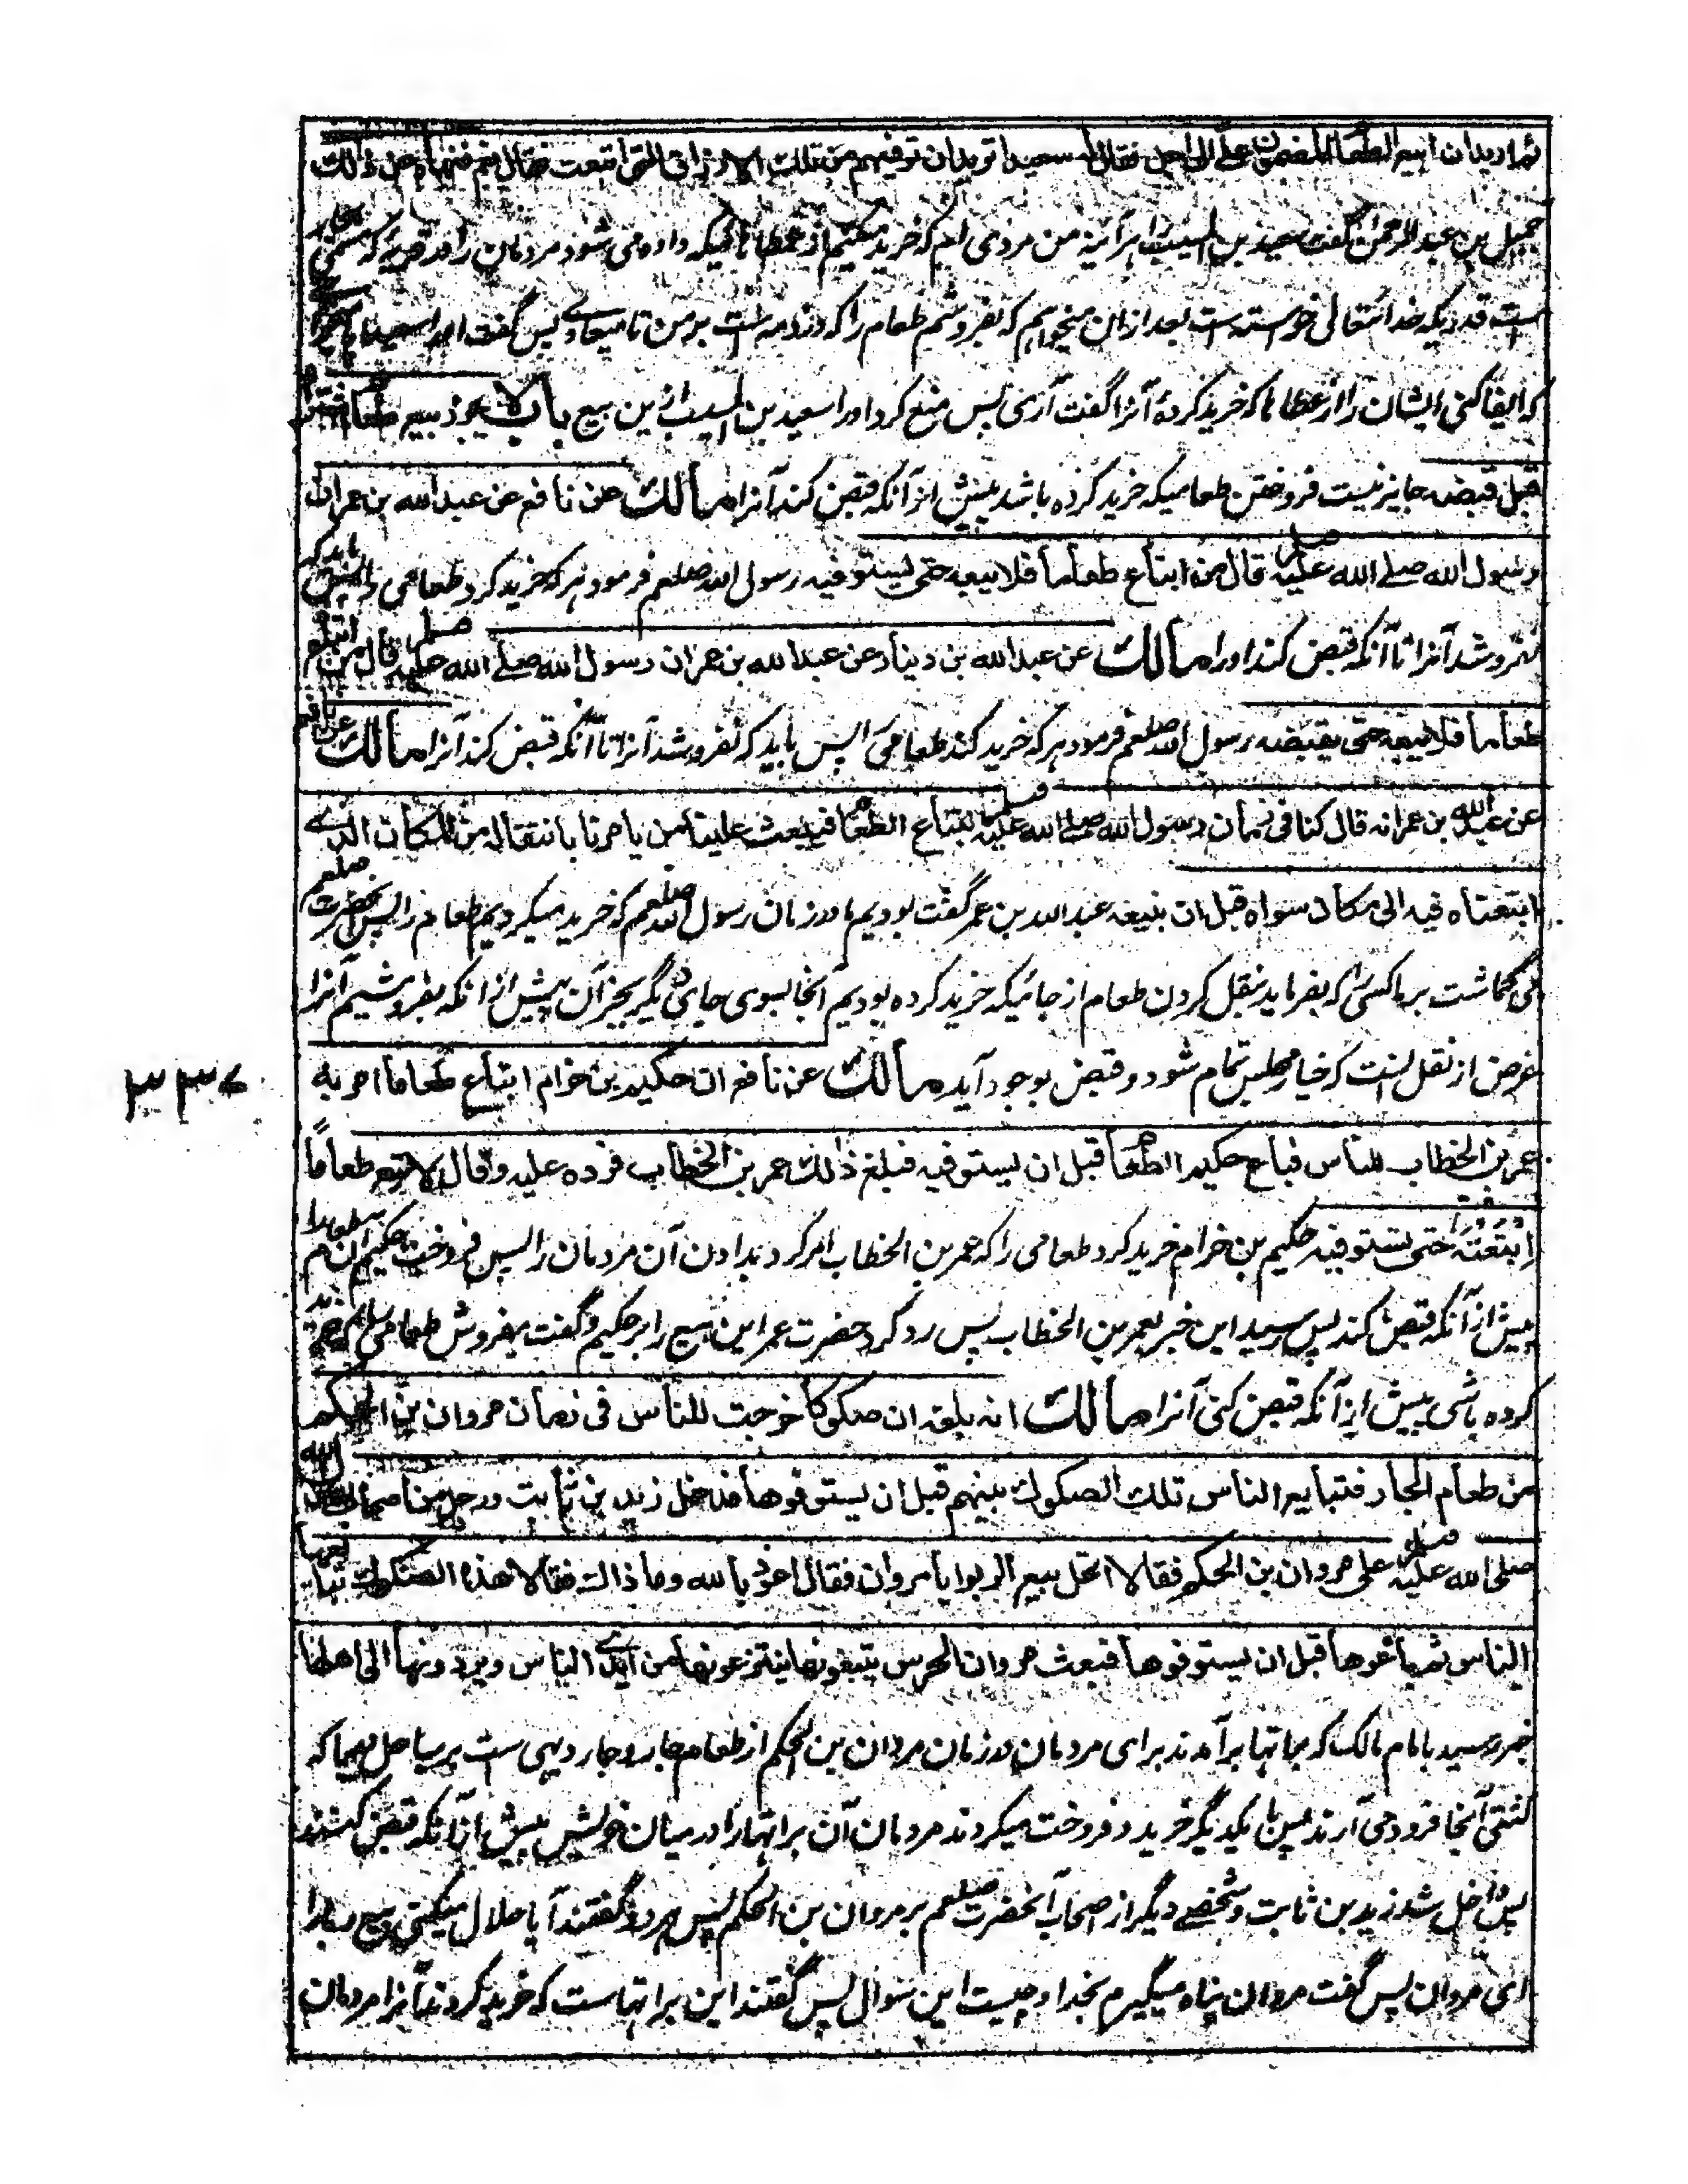 ثم اريد ان ابيع الطعام المضمون علي الى اجل فقال له سعيد اتريد ان توفيهم من تلك الارزاق التي ابتعت فقال نعم فنهاه عن ذالك
جميل بن عبد الرحمن گفت سعيد بن المسيب را هر آئينه من مردى ام كه خريد ميكنم از عطاها ئيكه داده مى شود مردمان را در قريه كه مسمى بجار
ست قدريكه خدا تعالى خواسته ست بعد ازان ميخواهم كه بفروشم طعام را كه در ذمه است بر من تا ميعادے پس گفت او را سعيد آيا ميخواهى
كه ايفا كنى ايشان را از عطاها كه خريد كرده آنرا گفت آرى پس منع كرد او را سعيد بن المسيب ازين بيع باب لا يجوز بيع طعام
قبل قبضه جايز نيست فروختن طعاميكه خريد كرده باشد پيش از آنكه قبض كند آنرا مالك عن نافع عن عبد الله بن عمر ان
رسول الله صلے الله عليه وسلم قال من ابتاع طعاما فلا يبعه حتى يستوفيه رسول الله صلعم فرمود هر كه خريد كرد طعامى را پس بايد كه
نفروشد آنرا تا آنكه قبض كند او را مالك عن عبد الله بن دينار عن عبد الله بن عمر ان رسول الله صلے الله عليه وسلم قال من ابتاع
طعاما فلا يبعه حتى يقبضه رسول الله صلعم فرمود هر كه خريد كند طعامى را پس بايد كه نفروشد آنرا تا آنكه قبض كند آنرا مالك عن نافع
عن عبد الله بن عمر انه قال كنا فى زمان رسول الله صلے الله عليه وسلم نبتاع الطعام فيبعث علينا من يامرنا بانتقاله من المكان الذے
ابتعناه فيه الى مكان سواه قبل ان نبيعه عبد الله بن عمر گفت بوديم ما در زمان رسول الله صلعم كه خريد ميكرديم طعام را پس آنحضرت صلعم
مى گماشت بر ما كسى را كه بفرمايد بنقل كردن طعام از جائيكه خريد كرده بوديم آنجا بسوى جاى ديگر بجز آن پيش از آنكه بفروشيم آنرا
غرض از نقل اينست كه خيار مجلس تمام شود و قبض بوجود آيد مالك عن نافع ان حكيم بن حزام ابتاع طعاما امر به
۳۳۷
عمر بن الخطاب للناس فباع حكيم الطعام قبل ان يستوفيه فبلغ ذلك عمر بن الخطاب فرده عليه وقال لا تبع طعاما
ابتعته حتى تستوفيه حكيم بن حزام خريد كرد طعامى را كه عمر بن الخطاب امر كرد بدادن آن مردمان را پس فروخت حكيم آن طعام را
پيش از آنكه قبض كند پس رسيد اين خبر بعمر بن الخطاب پس رد كرد حضرت عمر اين بيع را بر حكيم و گفت مفروش طعامى را كه خريد
كرده باشى پيش از آنكه قبض كنى آنرا مالك انه بلغه ان صكوكا خرجت للناس فى زمان مروان بن الحكم
من طعام الجار فتبايع الناس تلك الصكوك بينهم قبل ان يستوفوها فدخل زيد بن ثابت ورجل من اصحاب رسول الله
صلى الله عليه وسلم على مروان بن الحكم فقالا اتحل بيع الربوا يا مروان فقال اعوذ بالله وما ذاك فقالا هذه الصكوك تبايعها
الناس ثم باعوها قبل ان يستوفوها فبعث مروان الحرس يتبعونها ينتزعونها من ايدے الناس ويردونها الى اهلها
خبر رسيد بامام مالك كه براتها برآمدند براى مردمان در زمان مروان بن الحكم از طعام جار و جار ديهى ست بر ساحل دريا كه
كشتى آنجا فرود مى آرند پس با يكديگر خريد و فروخت ميكردند مردمان آن براتها را درميان خويش پيش از آنكه قبض كنند
پس داخل شد زيد بن ثابت و شخصے ديگر از اصحاب آنحضرت صلعم بر مروان بن الحكم پس هر دو گفتند آيا حلال ميكنى بيع ربا را
اى مروان پس گفت مروان پناه ميگيرم بخدا و چيست اين سوال پس گفتند اين براتهاست كه خريد كردند آنرا مردمان